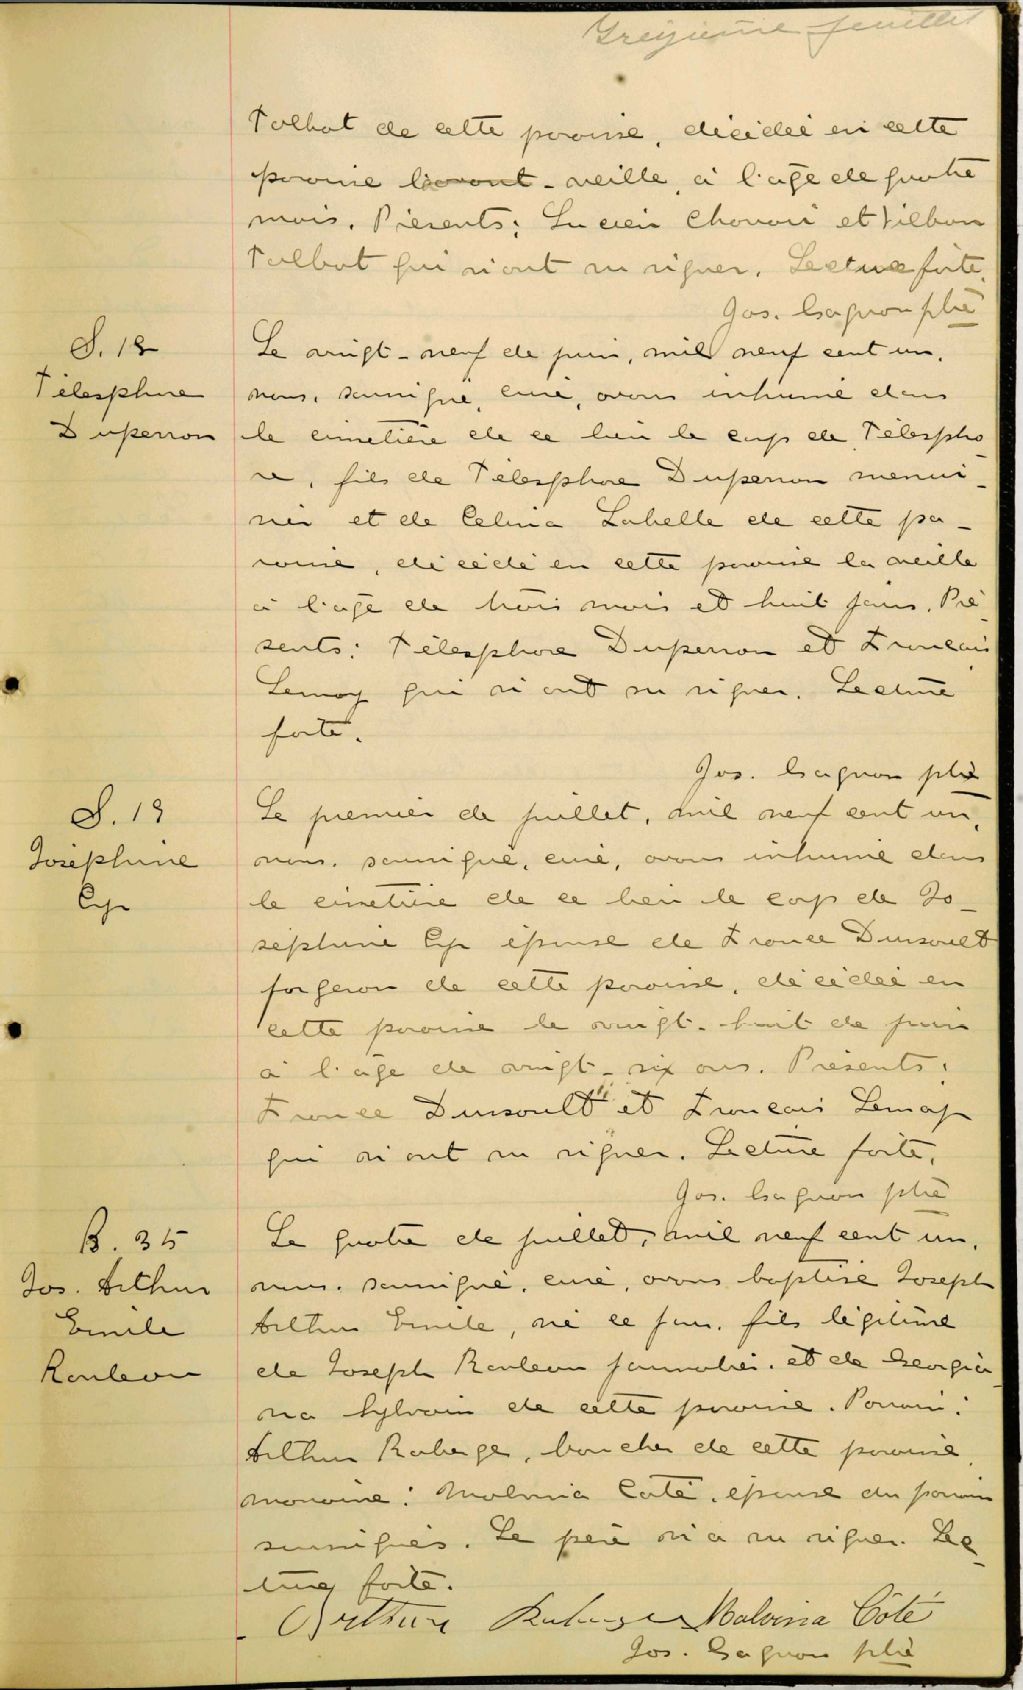 Treizième feuillet
Talbot de cette paroisse, décédée en cette
paroisse l'avant-veille, à l'âge de quatre
mois. Présents: Lucien Chouari et Vilbon
Talbot qui n'ont su signer. Lecture faite.
Jos. Gagnon ptre
S. 18
Télesphore
Duperron
Le vingt-neuf de juin, mil neuf cent un,
nous, soussigné, curé, avons inhumé dans
le cimetière de ce lieu le corps de Télespho-
re, fils de Télesphore Duperron menui-
sier et de Celina Labelle de cette pa-
roisse, décédé en cette paroisse la veille
à l'âge de trois mois et huit jours. Pré-
sents: Télesphore Duperron et Francais
Lemay qui n'ont su signer. Lecture
faite.
Jos. Gagnon ptre
S. 19
Joséphine
Cyr
Le premier de juillet, mil neuf cent un,
nous, soussigné, curé, avons inhumé dans
le cimetière de ce lieu le corps de Jo-
séphine Cyr épouse de France Dussault
forgeron de cette paroisse, décédée en
cette paroisse le vingt-huit de juin
à l'âge de vingt-six ans. Présents:
France Dussault et Francais Lemay
qui n'ont su signer. Lecture faite.
Jos. Gagnon ptre
B. 35
Jos. Arthur
Emile
Rouleau
Le quatre de juillet, mil neuf cent un,
nous, soussigné, curé, avons baptisé Joseph
Arthur Emile, né ce jour, fils légitime
de Joseph Rouleau journalier et de Georgia-
na Sylvain de cette paroisse. Parrain:
Arthur Roberge, boucher de cette paroisse,
marraine: Malvina Coté, épouse du parrain
soussignés. Le père n'a su signer. Lec-
ture faite.
Arthur Roberge Malvina Côté
Jos. Gagnon ptre